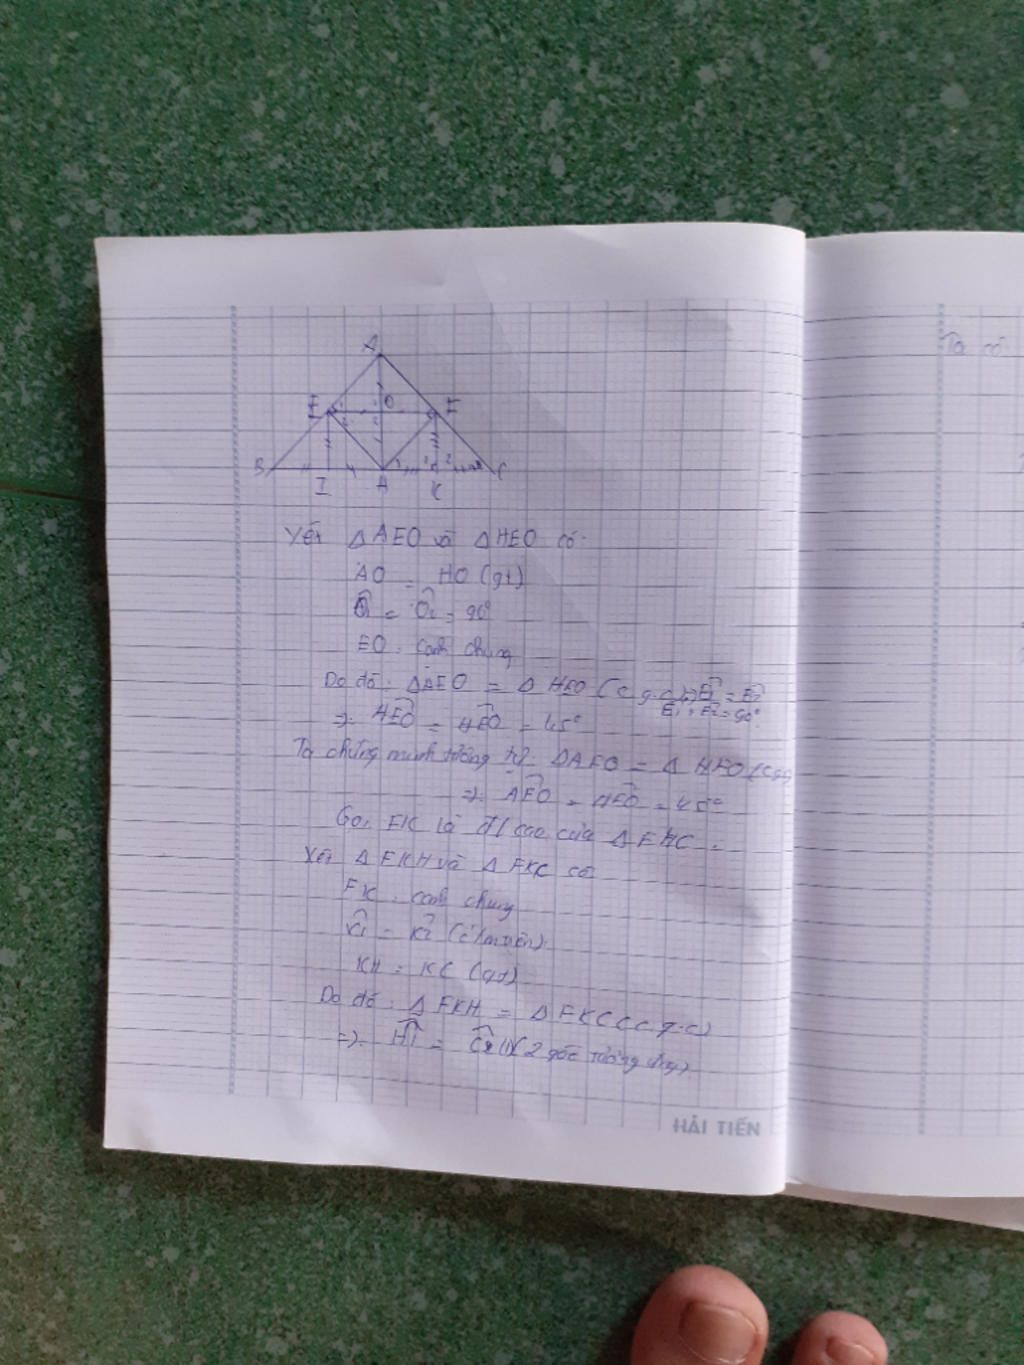 A
E
O
F
B
I
A
K
C
Xét ΔAEO và ΔHEO có:
AO = HO (gt)
Ô1 = Ô2 = 90°
EO: cạnh chung
Do đó: ΔAEO = ΔHEO (c.g.c) Ê1 = Ê2
Ê1 + Ê2 = 90°
=> HÊO = HÊO = 45°
Ta chứng minh tương tự: ΔAFO = ΔHFO (c.g.c)
=> = 45°
Gọi FK là đ/cao của ΔFHC.
Xét ΔFKH và ΔFKC có
FK: cạnh chung
K̂1 = K̂2 (c/m trên)
KH = KC (gt)
Do đó: ΔFKH = ΔFKC (c.g.c)
=> Ĥ1 = Ĉ2 (1) (2 góc tương ứng)
HẢI TIẾN
Ta có